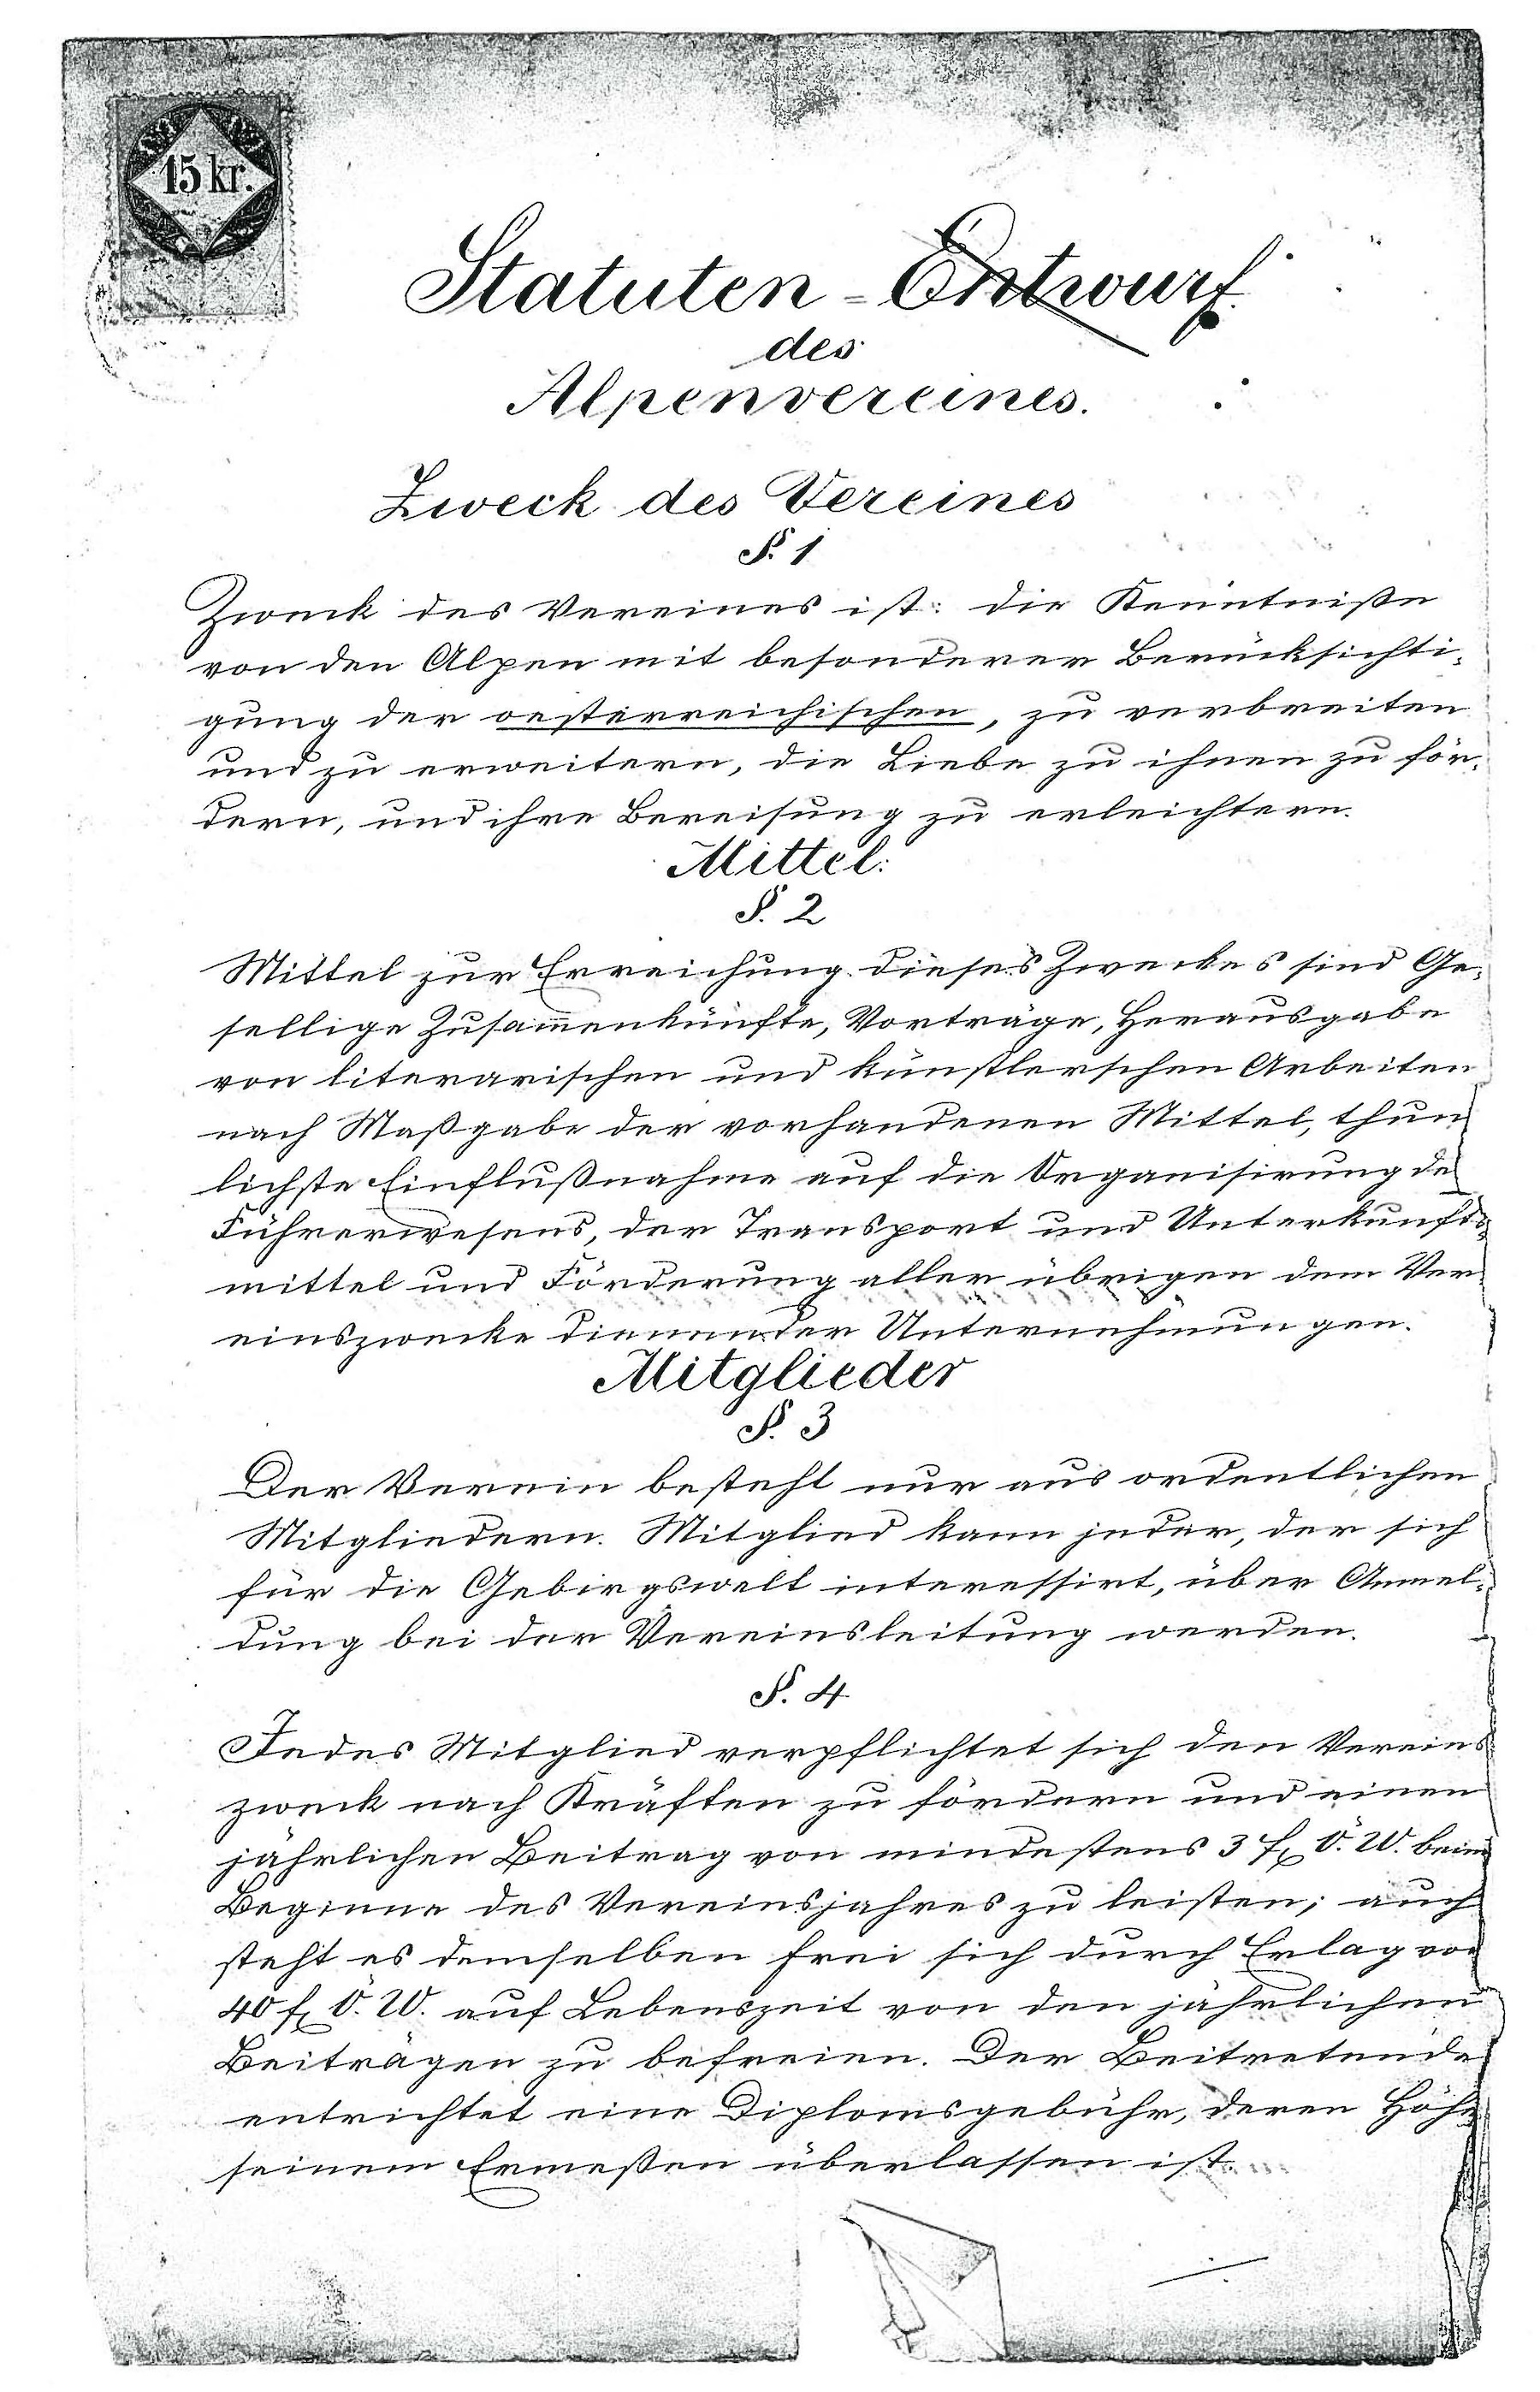 15 kr.
Statuten-Entwurf
des
Alpenvereines.
Zweck des Vereines
§. 1
Zweck des Vereines ist: die Kenntniße
von den Alpen mit besonderer Berücksichti-
gung der oesterreichischen, zu verbreiten
und zu erweitern, die Liebe zu ihnen zu för-
dern, und ihre Bereisung zu erleichtern.
Mittel:
§. 2
Mittel zur Erreichung dieses Zweckes sind Ge-
sellige Zusam̄enkünfte, Vorträge, Herausgabe
von literarischen und künstlerschen Arbeiten
nach Maßgabe der vorhandenen Mittel, thun
lichste Einflußnahme auf die Organisirung de
Führerwesens, der Transport und Unterkunfts-
mittel und Förderung aller übrigen dem Ver
einszwecke dienender Unternehmungen.
Mitglieder
§. 3
Der Verein besteht nur aus ordentlichen
Mitgliedern. Mitglied kann jeder, der sich
für die Gebirgswelt interessirt, über Anmel-
dung bei der Vereinsleitung werden.
§. 4
Jedes Mitglied verpflichtet sich den Vereins
zweck nach Kräften zu fördern und einen
jährlichen Beitrag von mindestens 3 fl Ö. W. beim
Beginne des Vereinsjahres zu leisten; auch
steht es demselben frei sich durch Erlag von
40 fl Ö. W. auf Lebenszeit von den jährlichen
Beiträgen zu befreien. Der Beitretende
entrichtet eine Diplomsgebühr, deren Höhe
seinem Ermeßen überlassen ist.